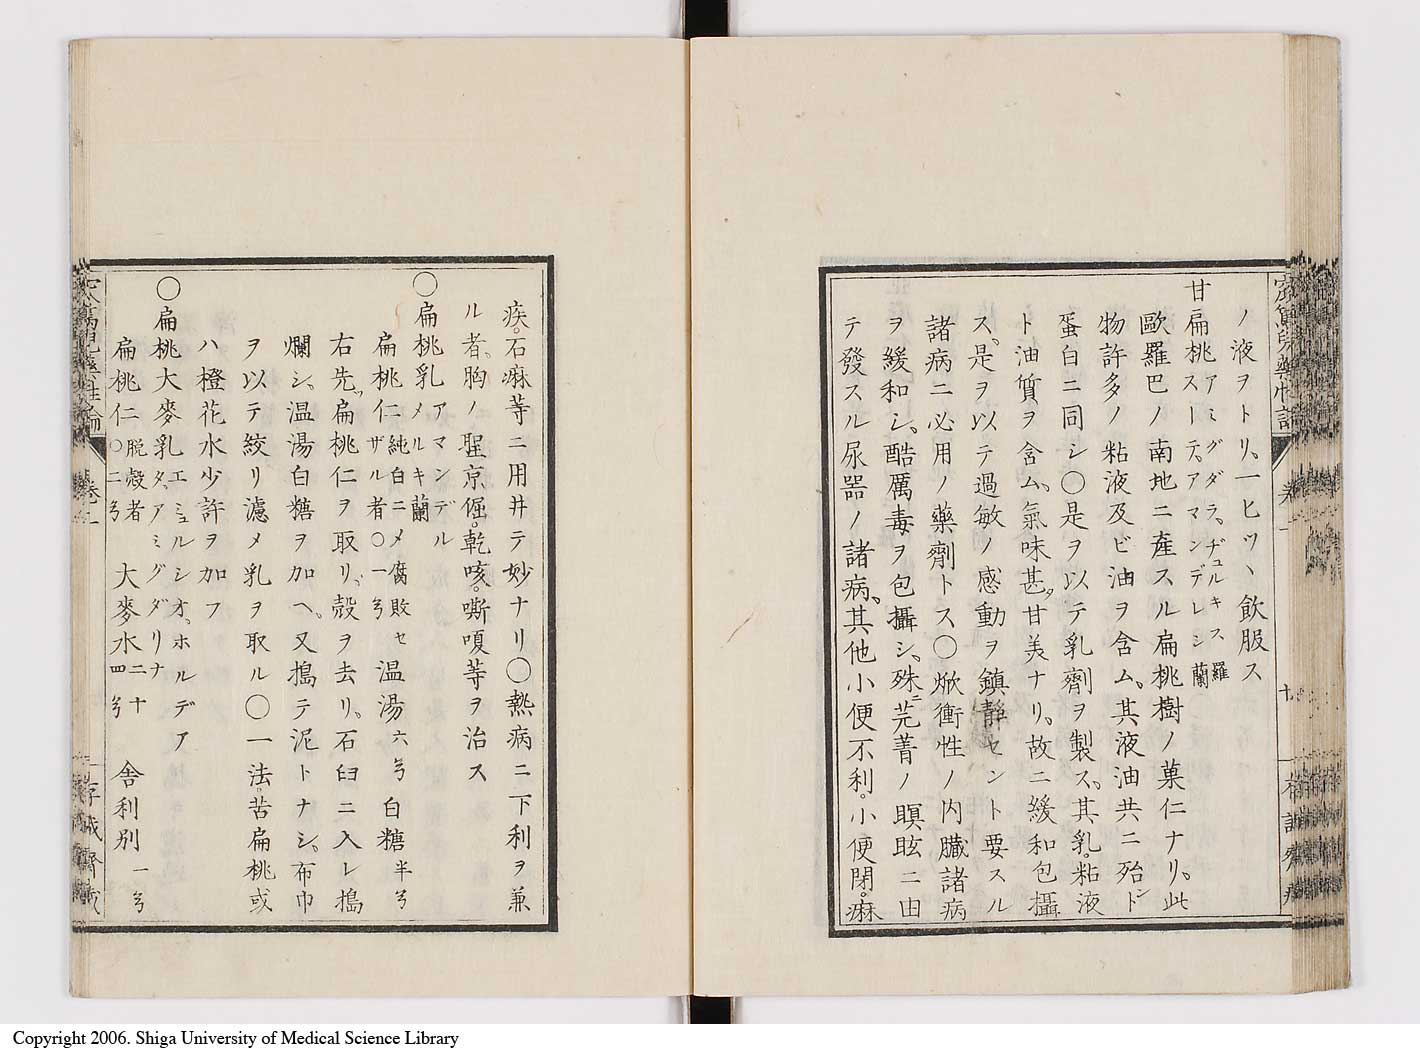 ノ液ヲトリ、一ヒツヽ飲服ス
甘扁桃 アミグダラ、ヂュルキス 羅
スーテ、アマンデレン 蘭
歐羅巴ノ南地ニ產スル扁桃樹ノ菓仁ナリ、此
物許多ノ粘液及ビ油ヲ含ム、其液油共ニ殆ンド
蛋白ニ同シ○是ヲ以テ乳劑ヲ製ス、其乳、粘液
ト油質ヲ含ム、氣味甚ダ甘美ナリ、故ニ緩和包攝
ス、是ヲ以テ過敏ノ感動ヲ鎮靜セント要スル
諸病ニ必用ノ藥劑トス○焮衝性ノ内臟諸病
ヲ緩和シ、酷厲毒ヲ包攝シ、殊ニ芫菁ノ瞑眩ニ由
テ發スル尿器ノ諸病、其他小便不利。小便閉。痳
疾。石痳等ニ用井テ妙ナリ○熱病ニ下利ヲ兼
ル者、胸ノ掣京倔。乾咳。嘶嗄等ヲ治ス
○扁桃乳 アマンデル
メルキ 蘭
扁桃仁 純白ニメ腐敗セ
ザル者○一ゟ 温湯 六ゟ 白糖 半ゟ
右先ヅ扁桃仁ヲ取リ、殼ヲ去リ、石臼ニ入レ搗
爛シ、温湯白糖ヲ加ヘ、又搗テ泥トナシ、布巾
ヲ以テ絞リ濾メ乳ヲ取ル○一法。苦扁桃或
ハ橙花水少許ヲ加フ
○扁桃大麥乳 エミュルシオ。ホルデア
タ、アミグダリナ
扁桃仁 脱殻者
○二ゟ 大麥水 二十
四ゟ 舎利別 一ゟ
Copyright 2006. Shiga University of Medical Science Library